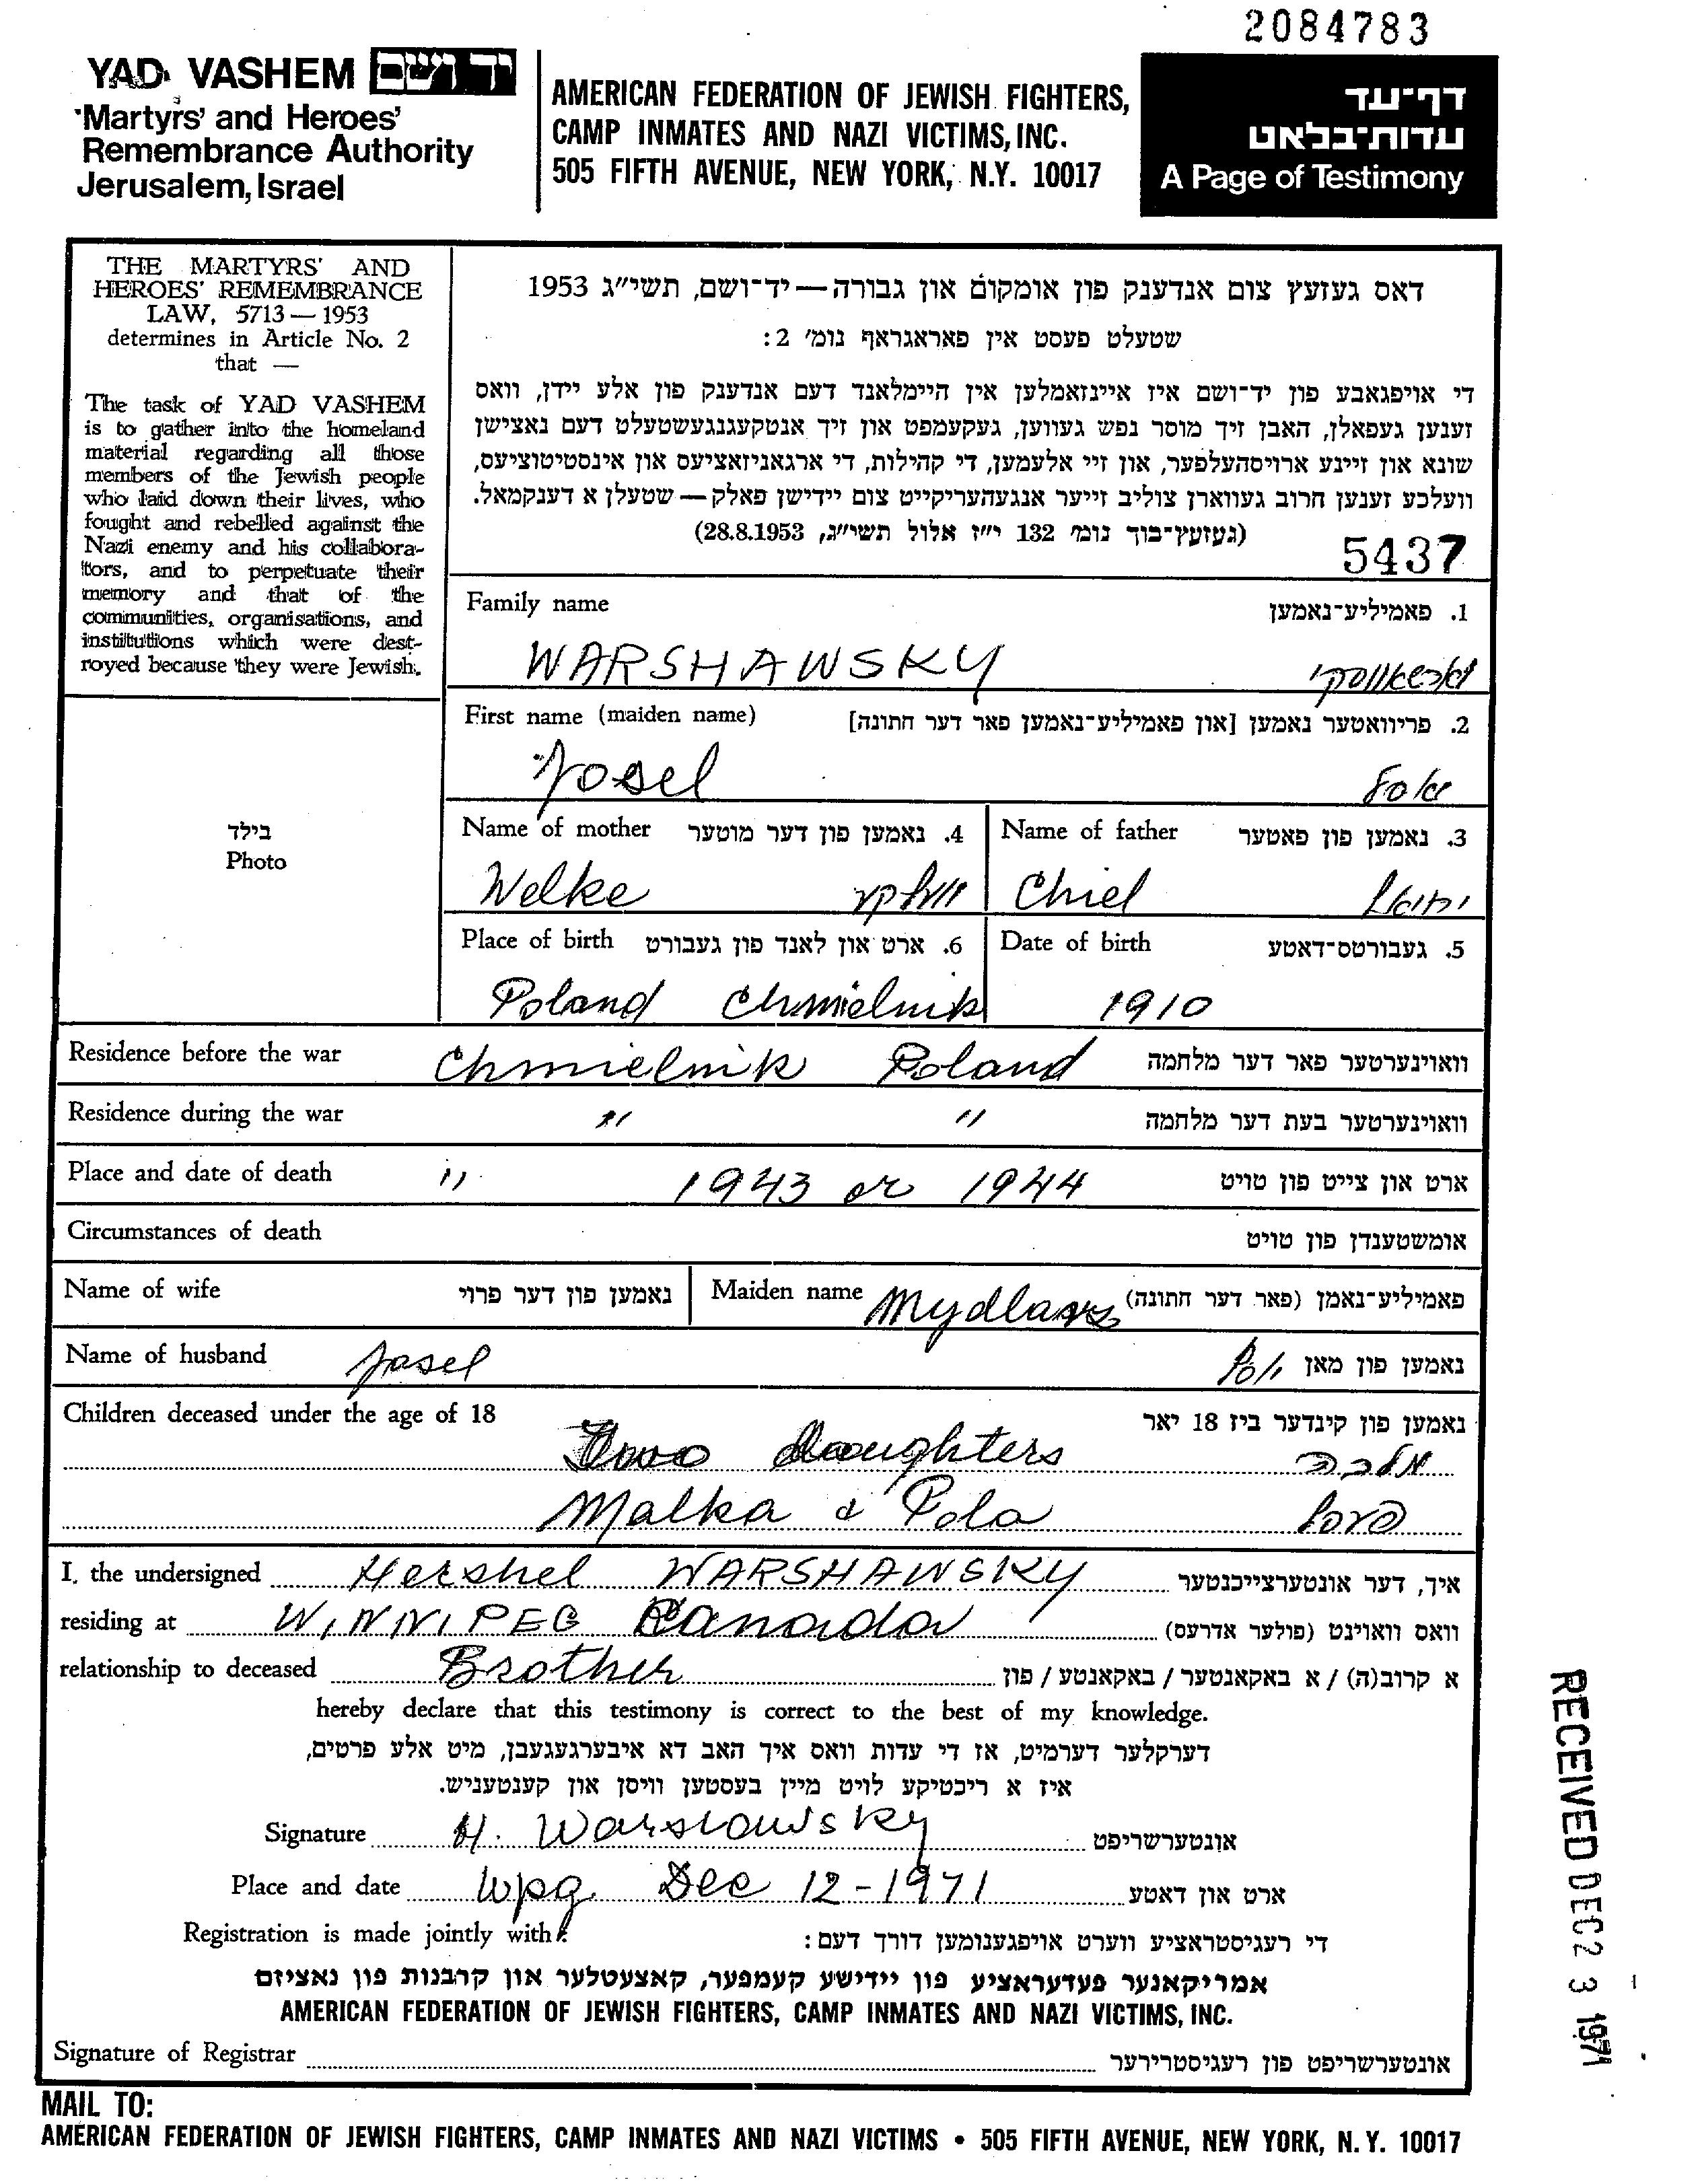 2084783
YAD VASHEM יד ושם
Martyrs' and Heroes'
Remembrance Authority
Jerusalem, Israel
AMERICAN FEDERATION OF JEWISH FIGHTERS,
CAMP INMATES AND NAZI VICTIMS, INC.
505 FIFTH AVENUE, NEW YORK, N.Y. 10017
דף־עד
עדות־בלאט
A Page of Testimony
THE MARTYRS' AND
HEROES' REMEMBRANCE
LAW, 5713 — 1953
determines in Article No. 2
that —
The task of YAD VASHEM
is to gather into the homeland
material regarding all those
members of the Jewish people
who laid down their lives, who
fought and rebelled against the
Nazi enemy and his collabora-
tors, and to perpetuate their
memory and that of the
communities, organisations, and
institutions which were dest-
royed because they were Jewish.
דאס געזעץ צום אנדענק פון אומקום און גבורה — יד־ושם, תשי״ג 1953
שטעלט פעסט אין פאראגראף נומ׳ 2:
די אויפגאבע פון יד־ושם איז איינזאמלען אין היימלאנד דעם אנדענק פון אלע יידן, וואס
זענען געפאלן, האבן זיך מוסר נפש געווען, געקעמפט און זיך אנטקעגנגעשטעלט דעם נאצישן
שונא און זיינע ארויסהעלפער, און זיי אלעמען, די קהילות, די ארגאניזאציעס און אינסטיטוציעס,
וועלכע זענען חרוב געווארן צוליב זייער אנגעהעריקייט צום יידישן פאלק — שטעלן א דענקמאל.
(געזעץ־בוך נומ׳ 132 י״ז אלול תשי״ג, 28.8.1953)
5437
Family name 1. פאמיליע־נאמען
WARSHAWSKY וארשאווסקי
First name (maiden name) 2. פריוואטער נאמען [און פאמיליע־נאמען פאר דער חתונה]
Yosel
Name of mother 4. נאמען פון דער מוטער Name of father 3. נאמען פון פאטער
Welke וועלקע Chiel יחיאל
Place of birth 6. ארט און לאנד פון געבורט Date of birth 5. געבורטס־דאטע
Poland Chmielnik 1910
בילד
Photo
Residence before the war Chmielnik Poland וואוינערטער פאר דער מלחמה
Residence during the war " " וואוינערטער בעת דער מלחמה
Place and date of death " 1943 or 1944 ארט און צייט פון טויט
Circumstances of death אומשטענדן פון טויט
Name of wife נאמען פון דער פרוי Maiden name פאמיליע־נאמן (פאר דער חתונה)
Name of husband Josel נאמען פון מאן
Children deceased under the age of 18 נאמען פון קינדער ביז 18 יאר
Two daughters מלכה
Malka & Pola
I, the undersigned Hershel WARSHAWSKY איך, דער אונטערצייכנטער
residing at WINNIPEG Canada וואס וואוינט (פולער אדרעס)
relationship to deceased Brother א קרוב(ה) / א באקאנטער / באקאנטע / פון
hereby declare that this testimony is correct to the best of my knowledge.
דערקלער דערמיט, אז די עדות וואס איך האב דא איבערגעגעבן, מיט אלע פרטים,
איז א ריכטיקע לויט מיין בעסטען וויסן און קענטעניש.
Signature H. Warshawsky אונטערשריפט
Place and date Wpg Dec 12-1971 ארט און דאטע
Registration is made jointly with: די רעגיסטראציע ווערט אויפגענומען דורך דעם:
אמריקאנער פעדעראציע פון יידישע קעמפער, קאצעטלער און קרבנות פון נאציזם
AMERICAN FEDERATION OF JEWISH FIGHTERS, CAMP INMATES AND NAZI VICTIMS, INC.
Signature of Registrar אונטערשריפט פון רעגיסטרירער
MAIL TO:
AMERICAN FEDERATION OF JEWISH FIGHTERS, CAMP INMATES AND NAZI VICTIMS • 505 FIFTH AVENUE, NEW YORK, N.Y. 10017
RECEIVED DEC 23 1971